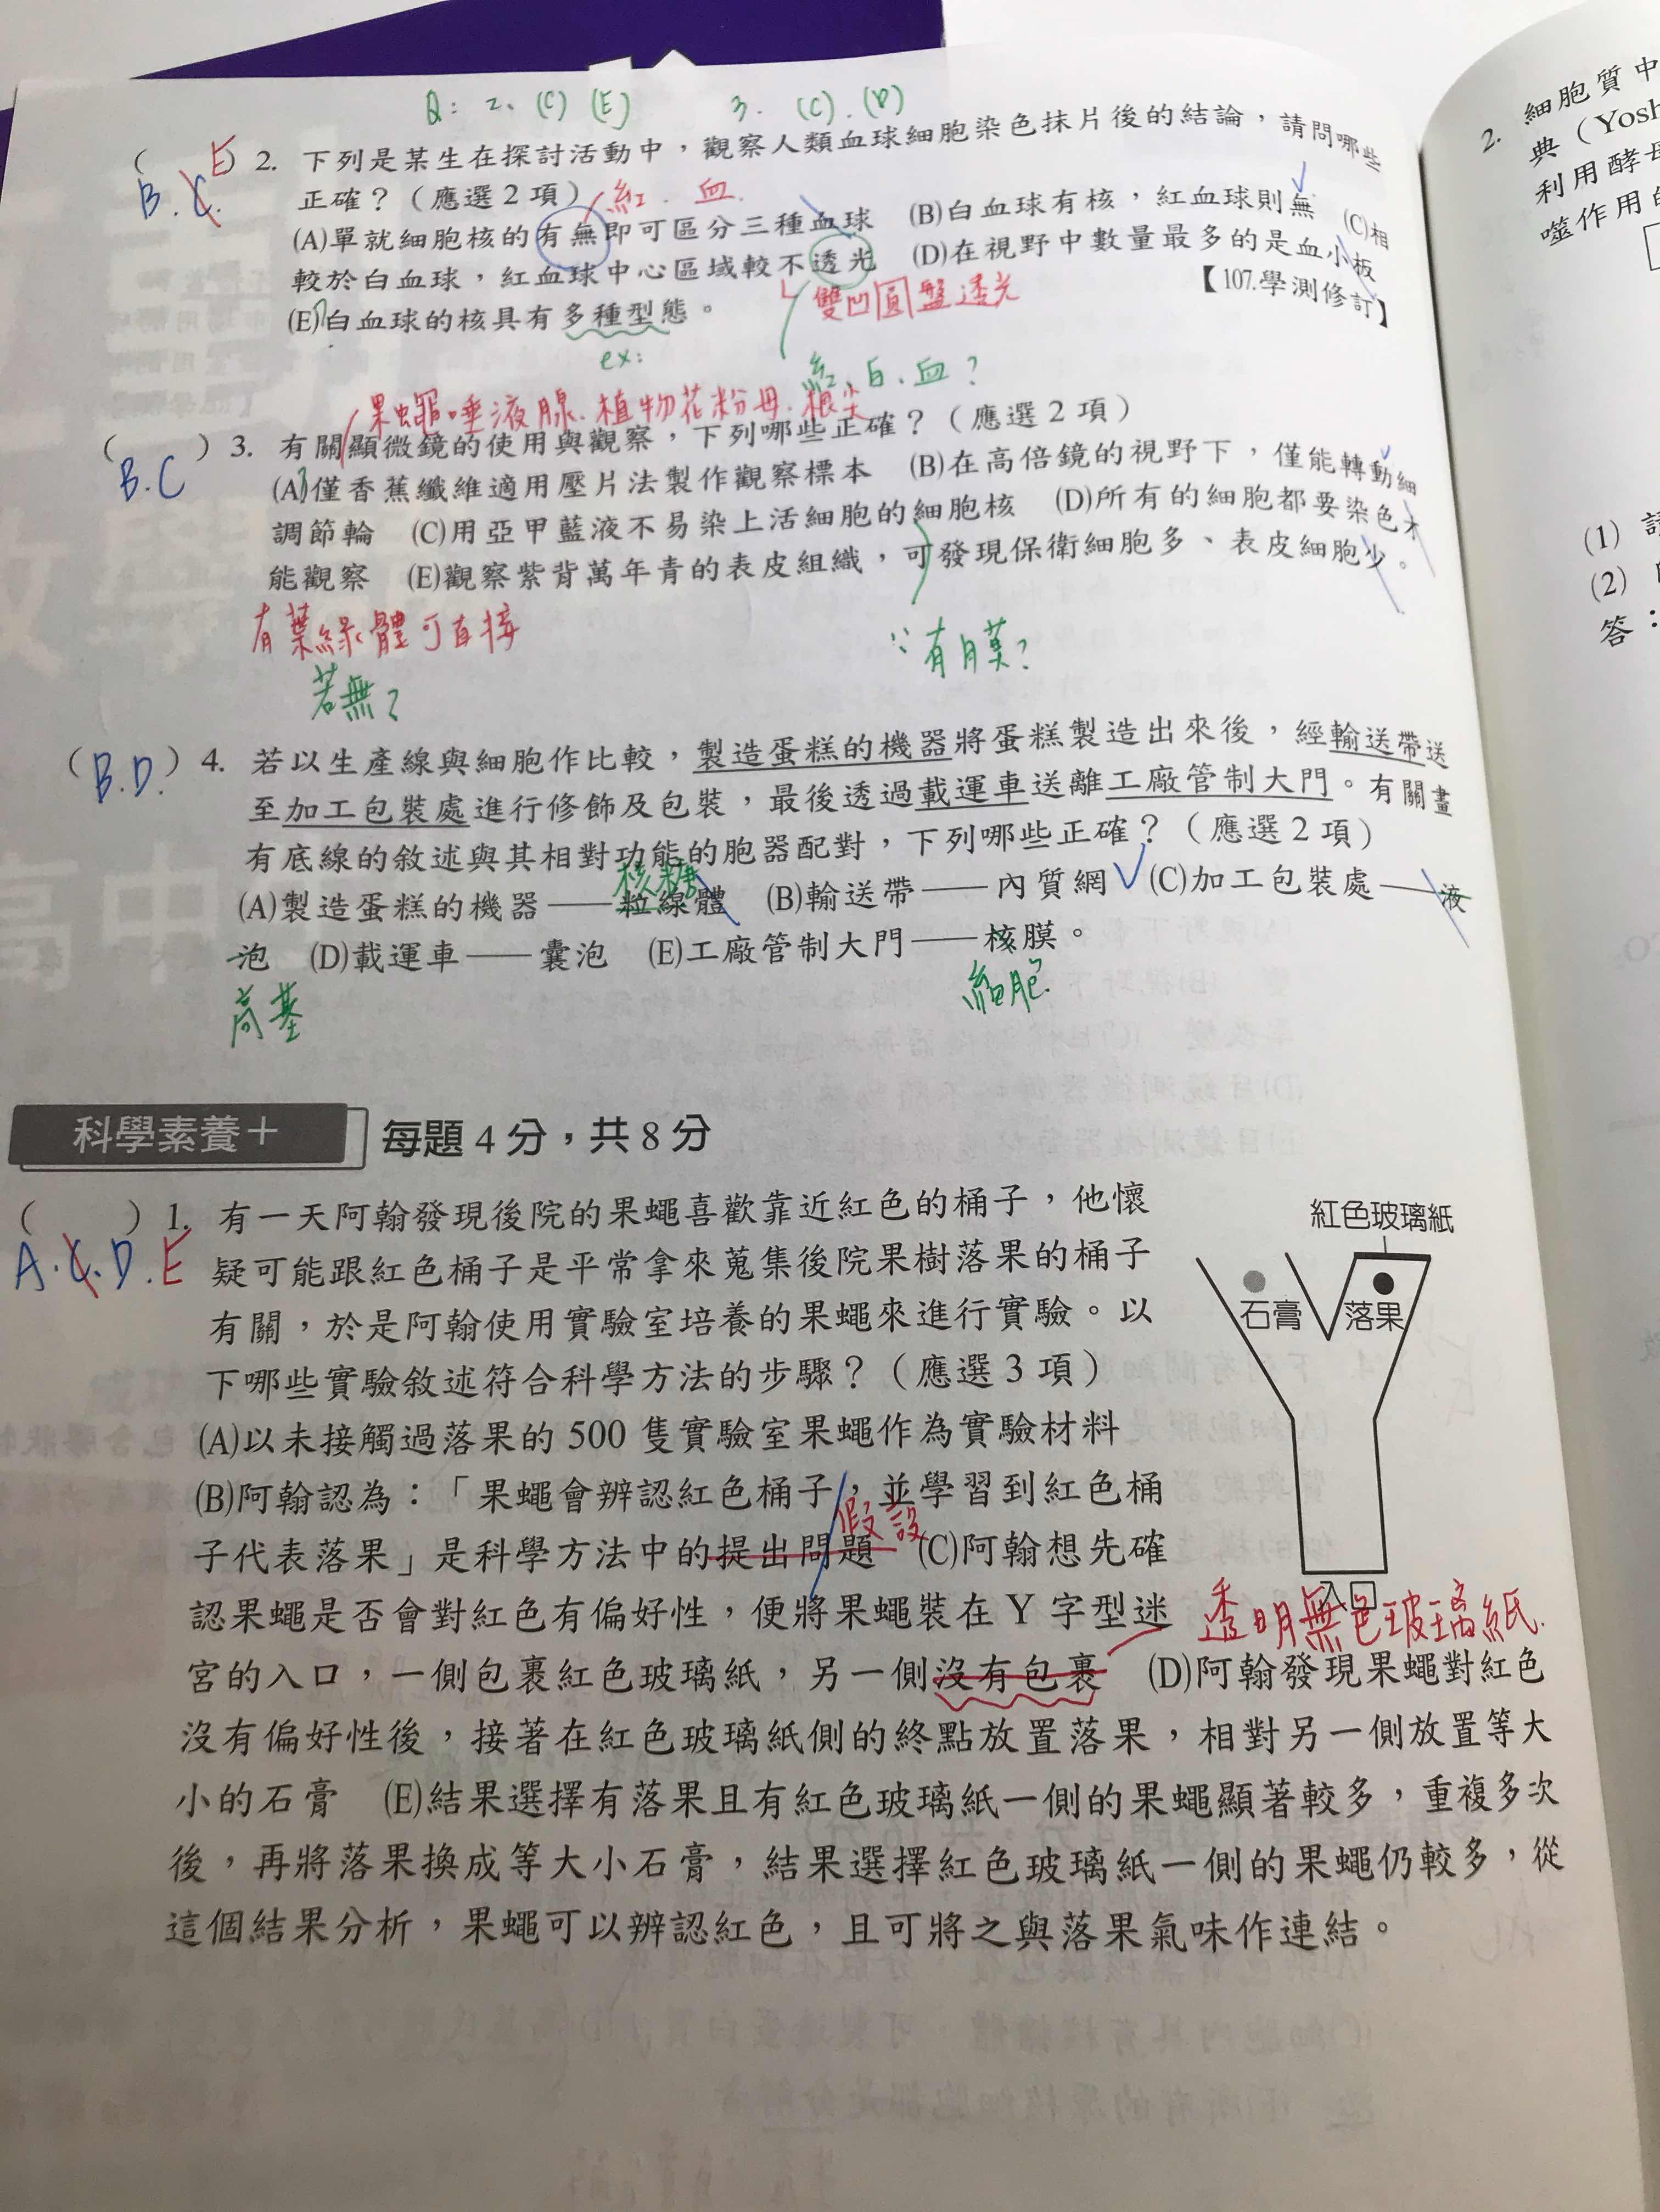 Q: 2. (C) (E)  3. (C).(D)
( E ) 2. 下列是某生在探討活動中，觀察人類血球細胞染色抹片後的結論，請問哪些
B.C.
正確？（應選2項）
紅．血．
(A)單就細胞核的有無即可區分三種血球 (B)白血球有核，紅血球則無 (C)相
較於白血球，紅血球中心區域較不透光 (D)在視野中數量最多的是血小板
(E)白血球的核具有多種型態。 【107.學測修訂】
雙凹圓盤透光
ex:
紅、白、血？
果蠅唾液腺．植物花粉母．根尖
( ) 3. 有關顯微鏡的使用與觀察，下列哪些正確？（應選2項）
B.C
(A)僅香蕉纖維適用壓片法製作觀察標本 (B)在高倍鏡的視野下，僅能轉動細
調節輪 (C)用亞甲藍液不易染上活細胞的細胞核 (D)所有的細胞都要染色才
能觀察 (E)觀察紫背萬年青的表皮組織，可發現保衛細胞多、表皮細胞少。
有葉綠體可直接
若無？
∵有膜？
( B.D. ) 4. 若以生產線與細胞作比較，製造蛋糕的機器將蛋糕製造出來後，經輸送帶送
至加工包裝處進行修飾及包裝，最後透過載運車送離工廠管制大門。有關畫
有底線的敘述與其相對功能的胞器配對，下列哪些正確？（應選2項）
核糖
(A)製造蛋糕的機器——粒線體 (B)輸送帶——內質網 (C)加工包裝處——液
泡 (D)載運車——囊泡 (E)工廠管制大門——核膜。
高基
細胞
科學素養＋ 每題4分，共8分
( ) 1. 有一天阿翰發現後院的果蠅喜歡靠近紅色的桶子，他懷
A.C.D.E
疑可能跟紅色桶子是平常拿來蒐集後院果樹落果的桶子
有關，於是阿翰使用實驗室培養的果蠅來進行實驗。以
下哪些實驗敘述符合科學方法的步驟？（應選3項）
(A)以未接觸過落果的500隻實驗室果蠅作為實驗材料
(B)阿翰認為：「果蠅會辨認紅色桶子，並學習到紅色桶
假設
子代表落果」是科學方法中的提出問題 (C)阿翰想先確
認果蠅是否會對紅色有偏好性，便將果蠅裝在Y字型迷
宮的入口，一側包裹紅色玻璃紙，另一側沒有包裹 (D)阿翰發現果蠅對紅色
沒有偏好性後，接著在紅色玻璃紙側的終點放置落果，相對另一側放置等大
小的石膏 (E)結果選擇有落果且有紅色玻璃紙一側的果蠅顯著較多，重複多次
後，再將落果換成等大小石膏，結果選擇紅色玻璃紙一側的果蠅仍較多，從
這個結果分析，果蠅可以辨認紅色，且可將之與落果氣味作連結。
紅色玻璃紙
石膏
落果
入口
透明無色玻璃紙．
2. 細胞質中
典（Yosh
利用酵母
噬作用的
(1)
(2)
答：